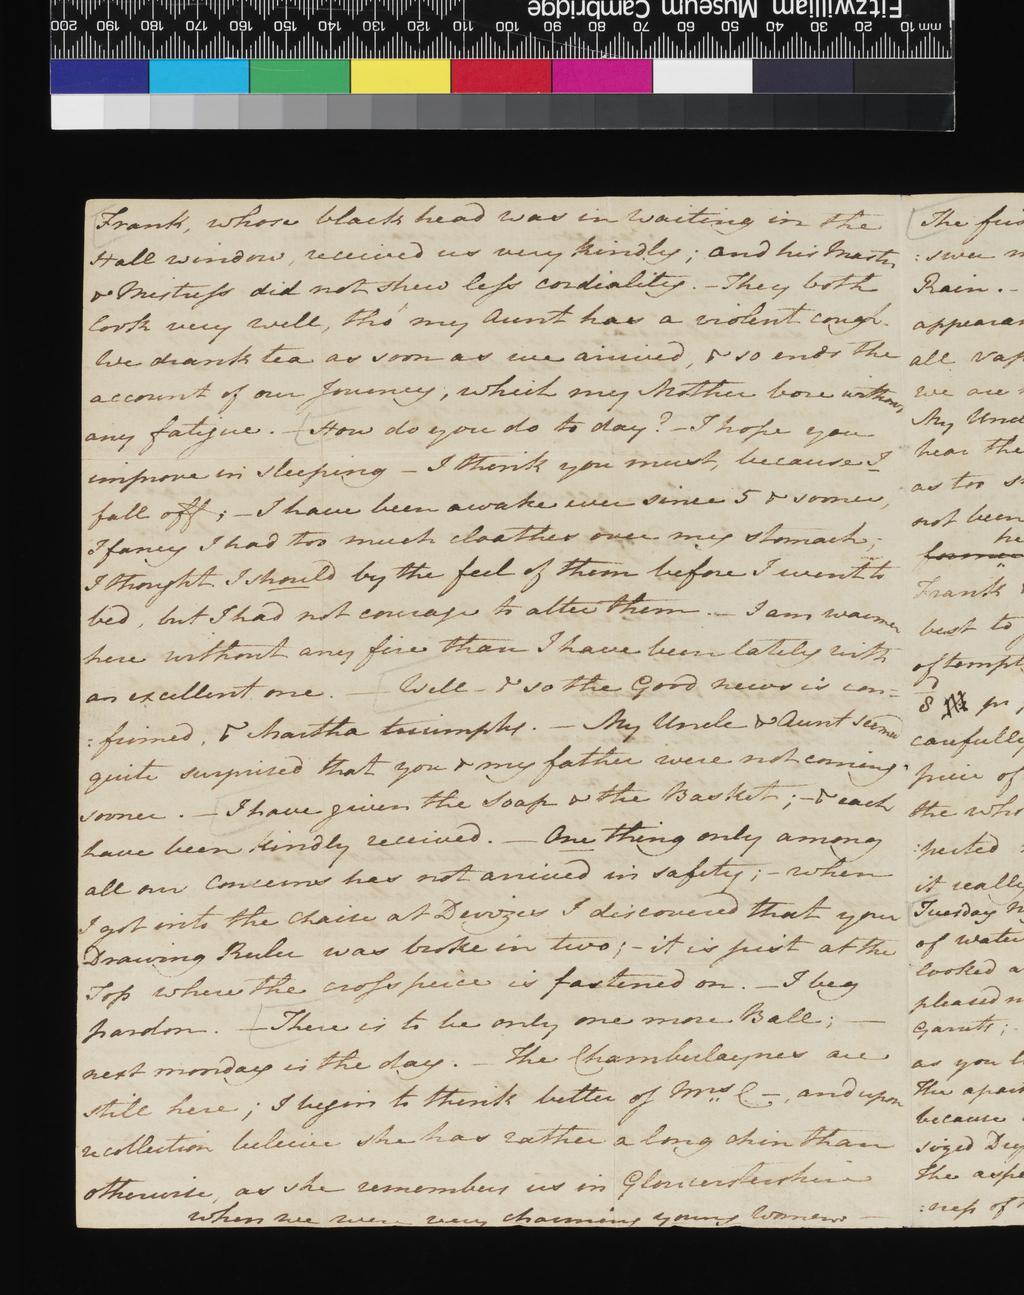 Fitzwilliam Museum Cambridge
mm 10 20 30 40 50 60 70 80 90 100 110 120 130 140 150 160 170 180 190 200
Frank, whose black head was in waiting in the
Hall window, received us very kindly; and his Master
& Mistress did not shew less cordiality. – They both
look very well, tho' my Aunt has a violent cough.
We drank tea as soon as we arrived, & so ends the
account of our Journey, which my Mother bore without
any fatigue. – How do you do to day? – I hope you
improve in sleeping – I think you must, because I
fall off; – I have been awake ever since 5 & sooner,
I fancy I had too much cloathes over my stomach;
I thought I should by the feel of them before I went to
bed, but I had not courage to alter them. – I am warmer
here without any fire than I have been lately with
an excellent one. – Well – & so the Good news is con=
:firmed, & Martha triumphs. – My Uncle & Aunt seemed
quite surprised that you & my father were not coming
sooner. – I have given the Soap & the Basket; – & each
have been kindly received. – One thing only among
all our Concerns has not arrived in safety; – when
I got into the Chaise at Devizes I discovered that your
Drawing Ruler was broke in two; – it is just at the
Top where the crosspeice is fastened on. – I beg
pardon. – There is to be only one more Ball; –
next monday is the day. – The Chamberlaynes are
still here; I begin to think better of Mrs C–, and upon
recollection beleive she has rather a long chin than
otherwise, as she remembers us in Gloucestershire
when we were very charming young Women –
The
Rain. –
all
we are
My
hear the
as too
not been
he
Frank
best to
of
8
carefully
peice of
the
:pected
it really
Tuesday
of water
looked
pleased
Garrets;
as you
The
because
sized
The
:ness of